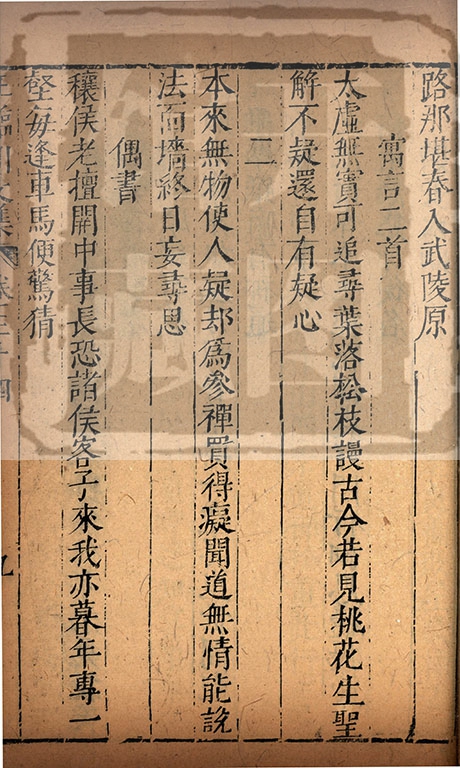 路那堪春入武陵原
寓言二首
太虛無實可追尋葉落松枝謾古今若見桃花生聖
解不疑還自有疑心
二
本來無物使人疑却爲參禪買得癡聞道無情能說
法面墻終日妄尋思
偶書
穰侯老擅關中事長恐諸侯客子來我亦暮年專一
壑每逢車馬便驚猜